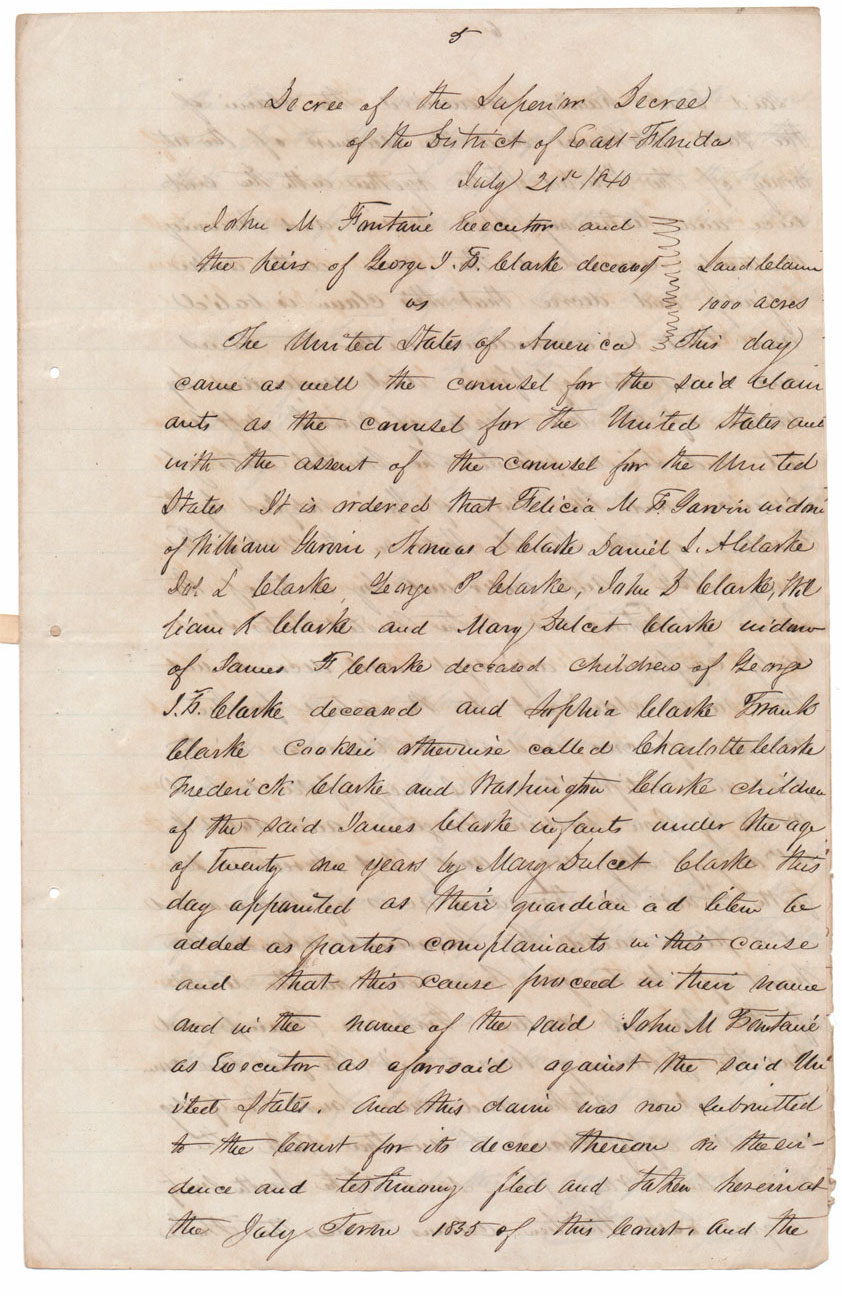 5
Decree of the Superior Decree
of the District of East Florida
July 21st 1840
John M Fontané Executor and
the heirs of George I. F. Clarke deceased Land Claim
vs 1000 acres
The United States of America This day
came as well the counsel for the said claim
ants as the counsel for the United States and
with the assent of the counsel for the United
States It is ordered that Felicia M F. Garvin widow
of William Garvin, Thomas L Clarke Daniel S. A Clarke
Jos L Clarke, George P Clarke, John D Clarke, Wil
liam R Clarke and Mary Dulcet Clarke widow
of James F Clarke deceased children of George
I. F. Clarke deceased and Sophia Clarke Frank
Clarke Cooksie otherwise called Charlotte Clarke
Frederick Clarke and Washington Clarke children
of the said James Clarke infants under the age
of twenty one years by Mary Dulcet Clarke this
day appointed as their guardian ad litem be
added as parties complainants in this cause
and that this cause proceed in their name
and in the name of the said John M Fontané
as Executor as aforesaid against the said Un
ited States. And this claim was now submitted
to the Court for its decree thereon on the evi-
dence and testimony filed and taken herein at
the July Term 1835 of this Court. And the